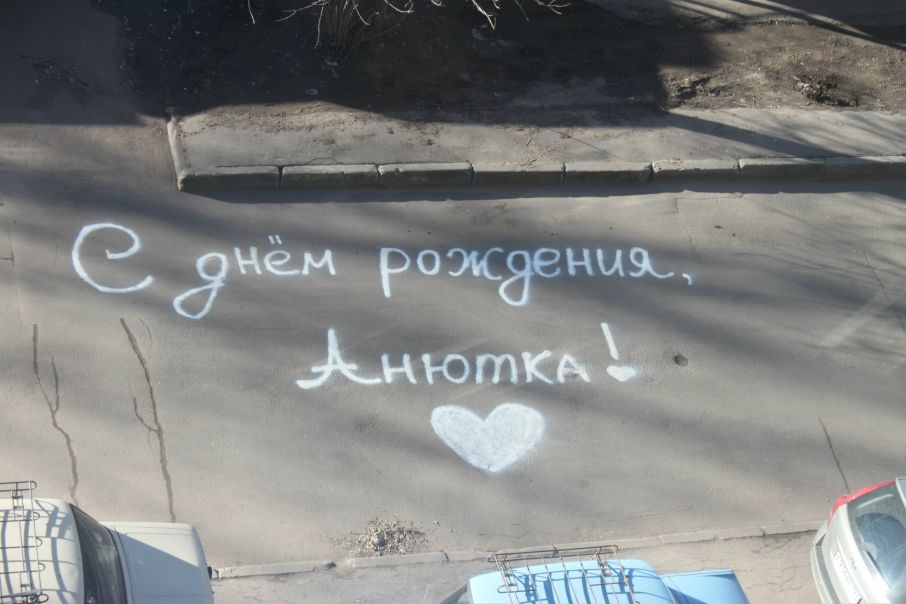 С днём рождения,
Анютка!